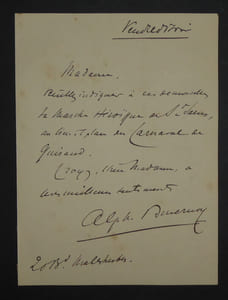 Vendredi soir
Madame,
Veuillez indiquer à ces demoiselles
la Marche Héroïque de St Saens,
au lieu et place du Carnaval de
Guiraud.
Croyez, chère Madame, à
mes meilleurs sentiments
Alph. Duvernoy
20 Bd Malesherbes.